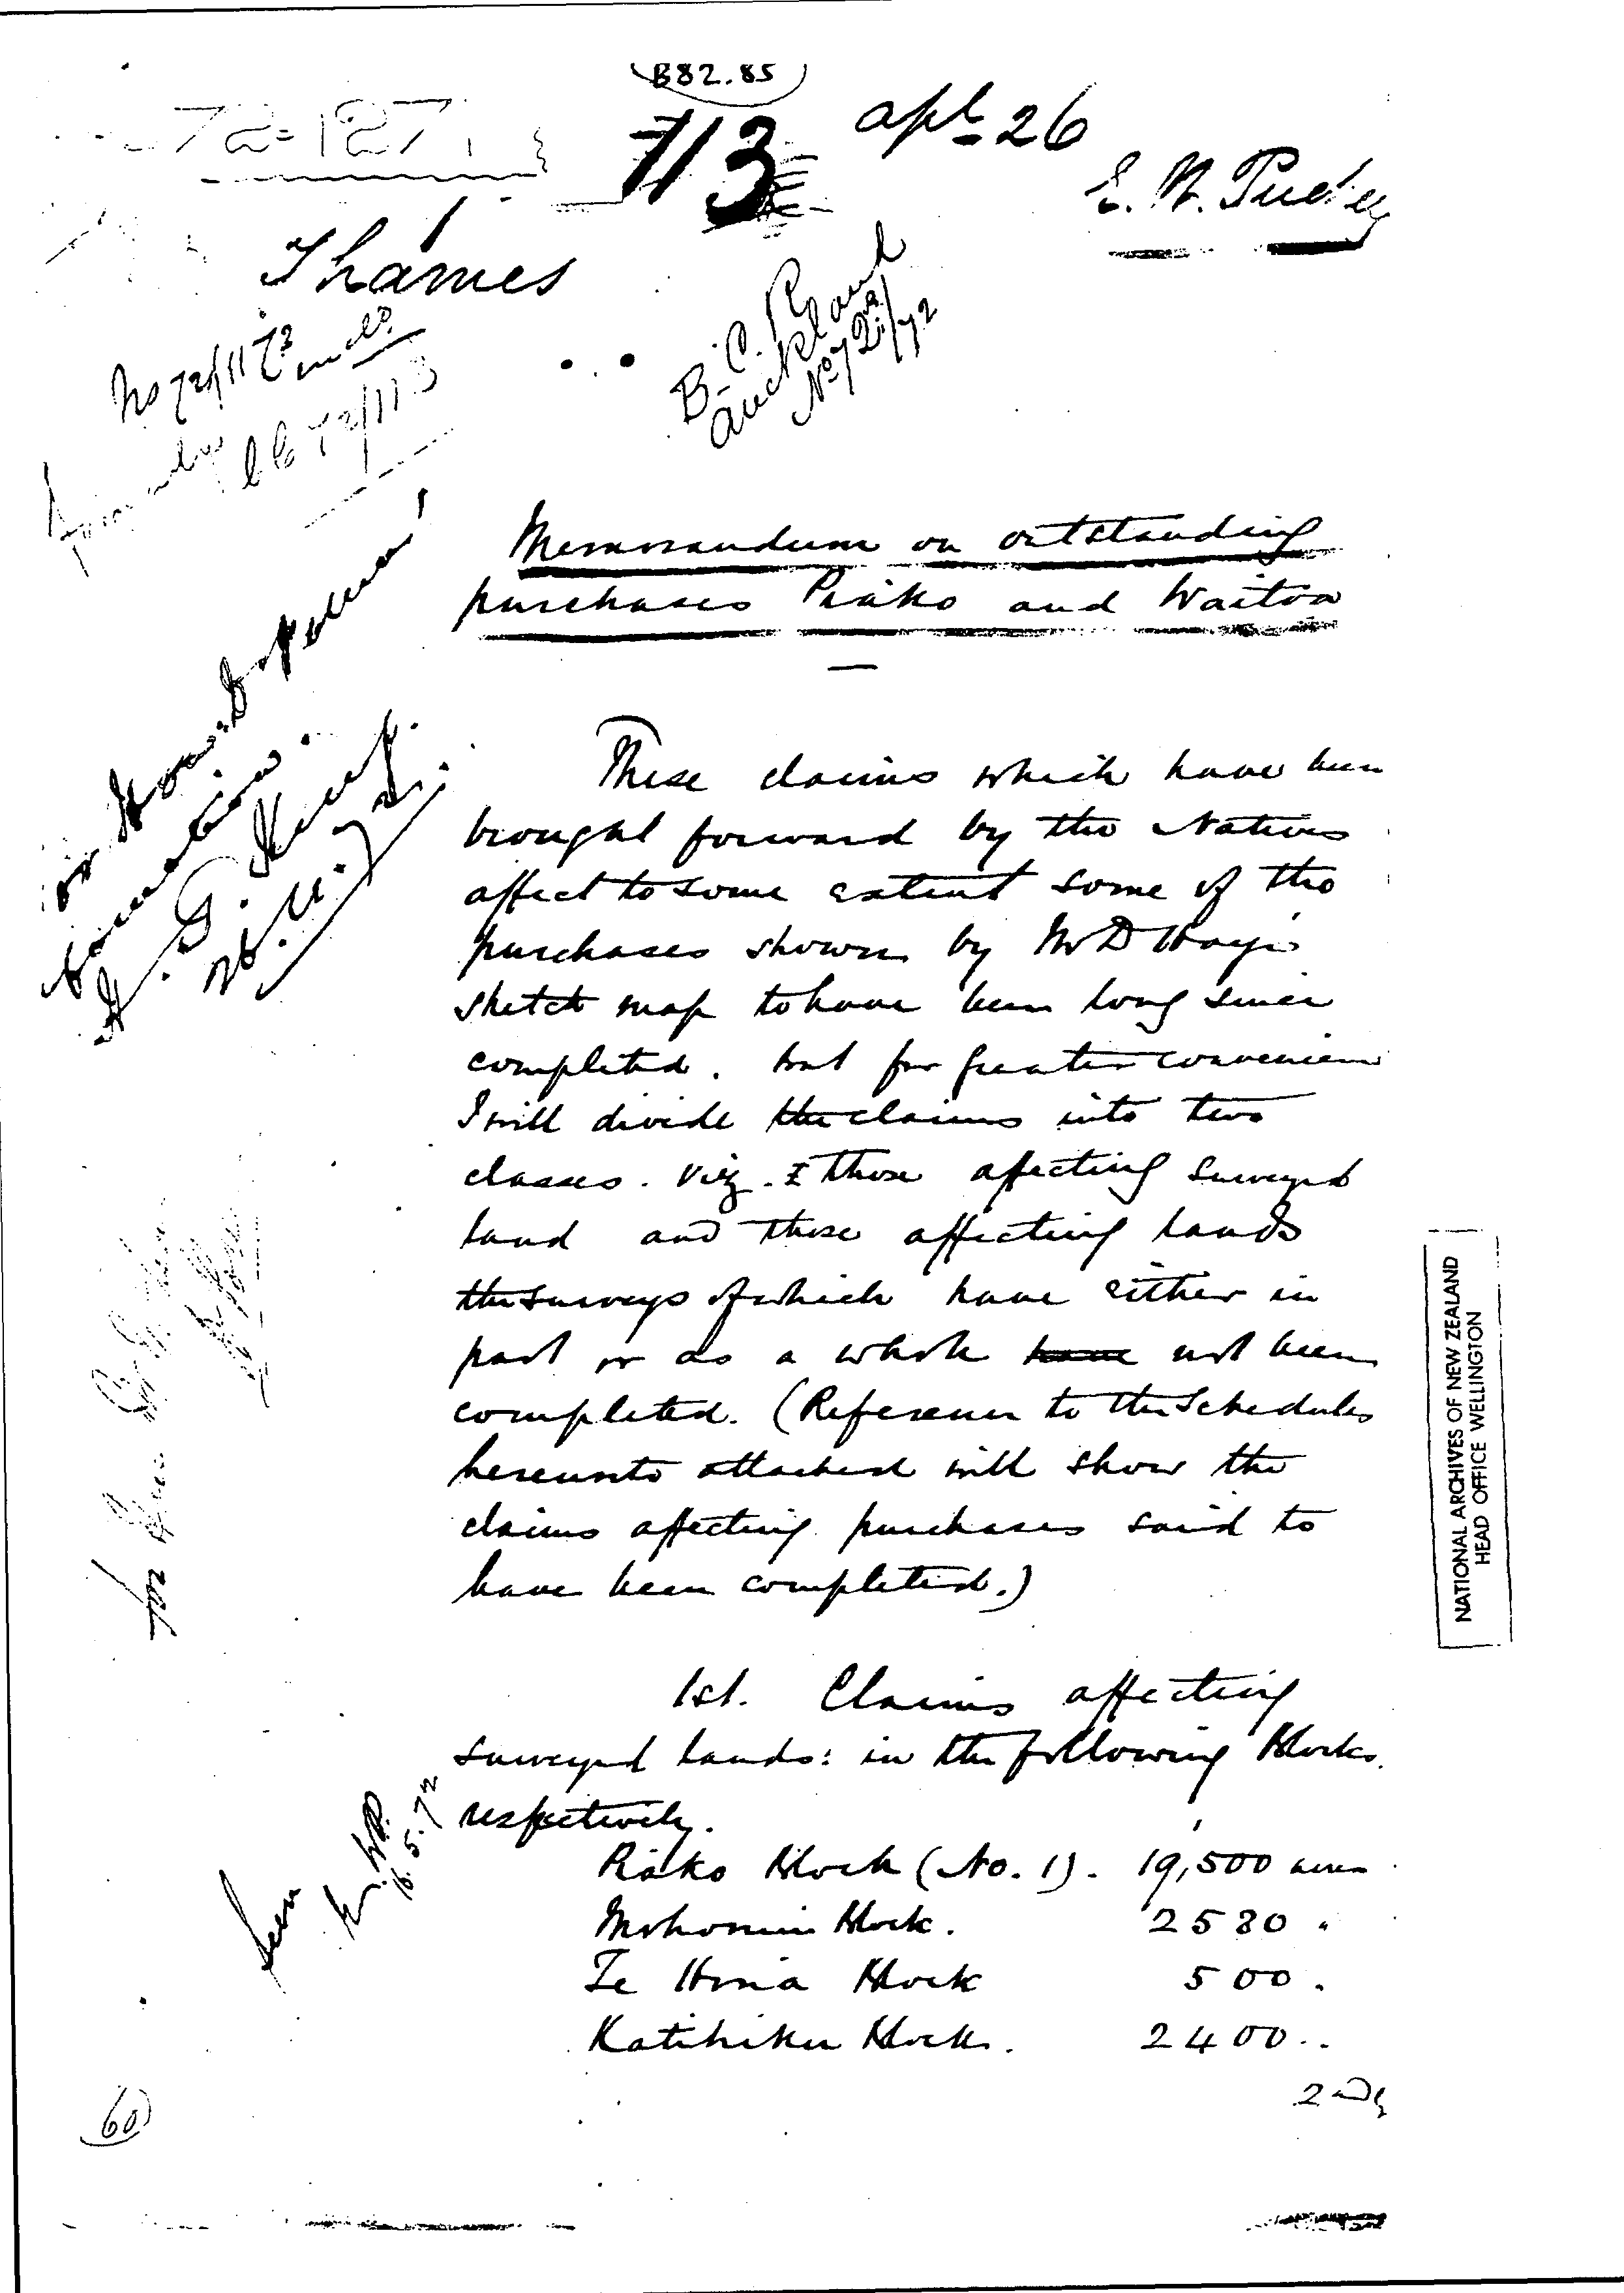 B82.85
72-127
713
Apl 26
E. W. Puckey
Thames
B. C. R.
Auckland
No 72/72
No 72/117
CC 72/113
Memorandum on outstanding
purchases Piako and Waitoa
These claims which have been
brought forward by the Natives
affect to some extent some of the
purchases shown by Mr D Hay's
sketch map to have been long since
completed. but for greater convenience
I will divide the claims into two
classes. viz. those affecting surveyed
land and those affecting lands
the surveys of which have either in
part or as a whole have not been
completed. (Reference to the Schedules
hereunto attached will show the
claims affecting purchases said to
have been completed.)
1st. Claims affecting
surveyed lands: in the following Blocks.
respectively.
Piako Block (No. 1). 19,500 acres
Block. 2580 "
Te Block 500 .
Katihiku Block. 2400 ..
2ndly
Seen
16.5.72
60
NATIONAL ARCHIVES OF NEW ZEALAND
HEAD OFFICE WELLINGTON